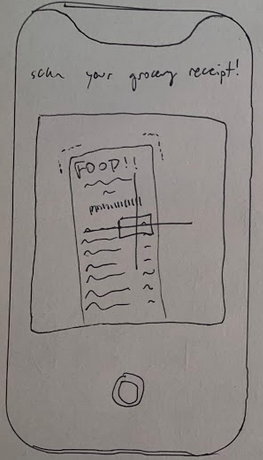 scan your grocery receipt!
FOOD!!